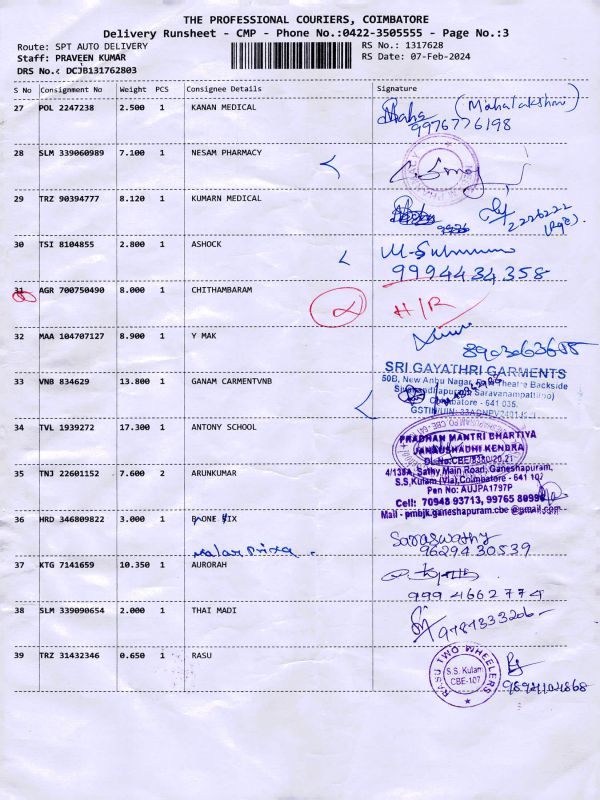 THE PROFESSIONAL COURIERS, COIMBATORE
Delivery Runsheet - CMP - Phone No.:0422-3505555 - Page No.:3
Route: SPT AUTO DELIVERY RS No.: 1317628
Staff: PRAVEEN KUMAR RS Date: 07-Feb-2024
DRS No.: DCJB131762803
S No Consignment No Weight PCS Consignee Details Signature
27 POL 2247238 2.500 1 KANAN MEDICAL (Mahalakshmi)
9976776198
28 SLM 339060989 7.100 1 NESAM PHARMACY
29 TRZ 90394777 8.120 1 KUMARN MEDICAL
2226222
30 TSI 8104855 2.800 1 ASHOCK
9994434358
31 AGR 700750490 8.000 1 CHITHAMBARAM H/R
32 MAA 104707127 8.900 1 Y MAK
SRI GAYATHRI GARMENTS
50B, New Anbu Nagar, Theatre Backside
33 VNB 834629 13.800 1 GANAM CARMENTVNB
Saravanampatti(po)
Coimbatore - 641 035.
34 TVL 1939272 17.300 1 ANTONY SCHOOL
PRADHAN MANTRI BHARTIYA
JANAUSHADHI KENDRA
DL No:CBE/8380/20,21
35 TNJ 22601152 7.600 2 ARUNKUMAR
4/138A, Sathy Main Road, Ganeshapuram,
S.S.Kulam (Via) Coimbatore - 641 107
Pen No: AUJPA1797P
Cell: 70948 93713, 99765 80996
Mail - pmbjk.ganeshapuram.cbe@gmail.com
36 HRD 346809822 3.000 1
Saraswathy
9629430539
37 KTG 7141659 10.350 1 AURORAH
9994662774
38 SLM 339090654 2.000 1 THAI MADI
9787333206
39 TRZ 31432346 0.650 1 RASU
RASU TWO WHEELERS
S.S. Kulam
CBE-107